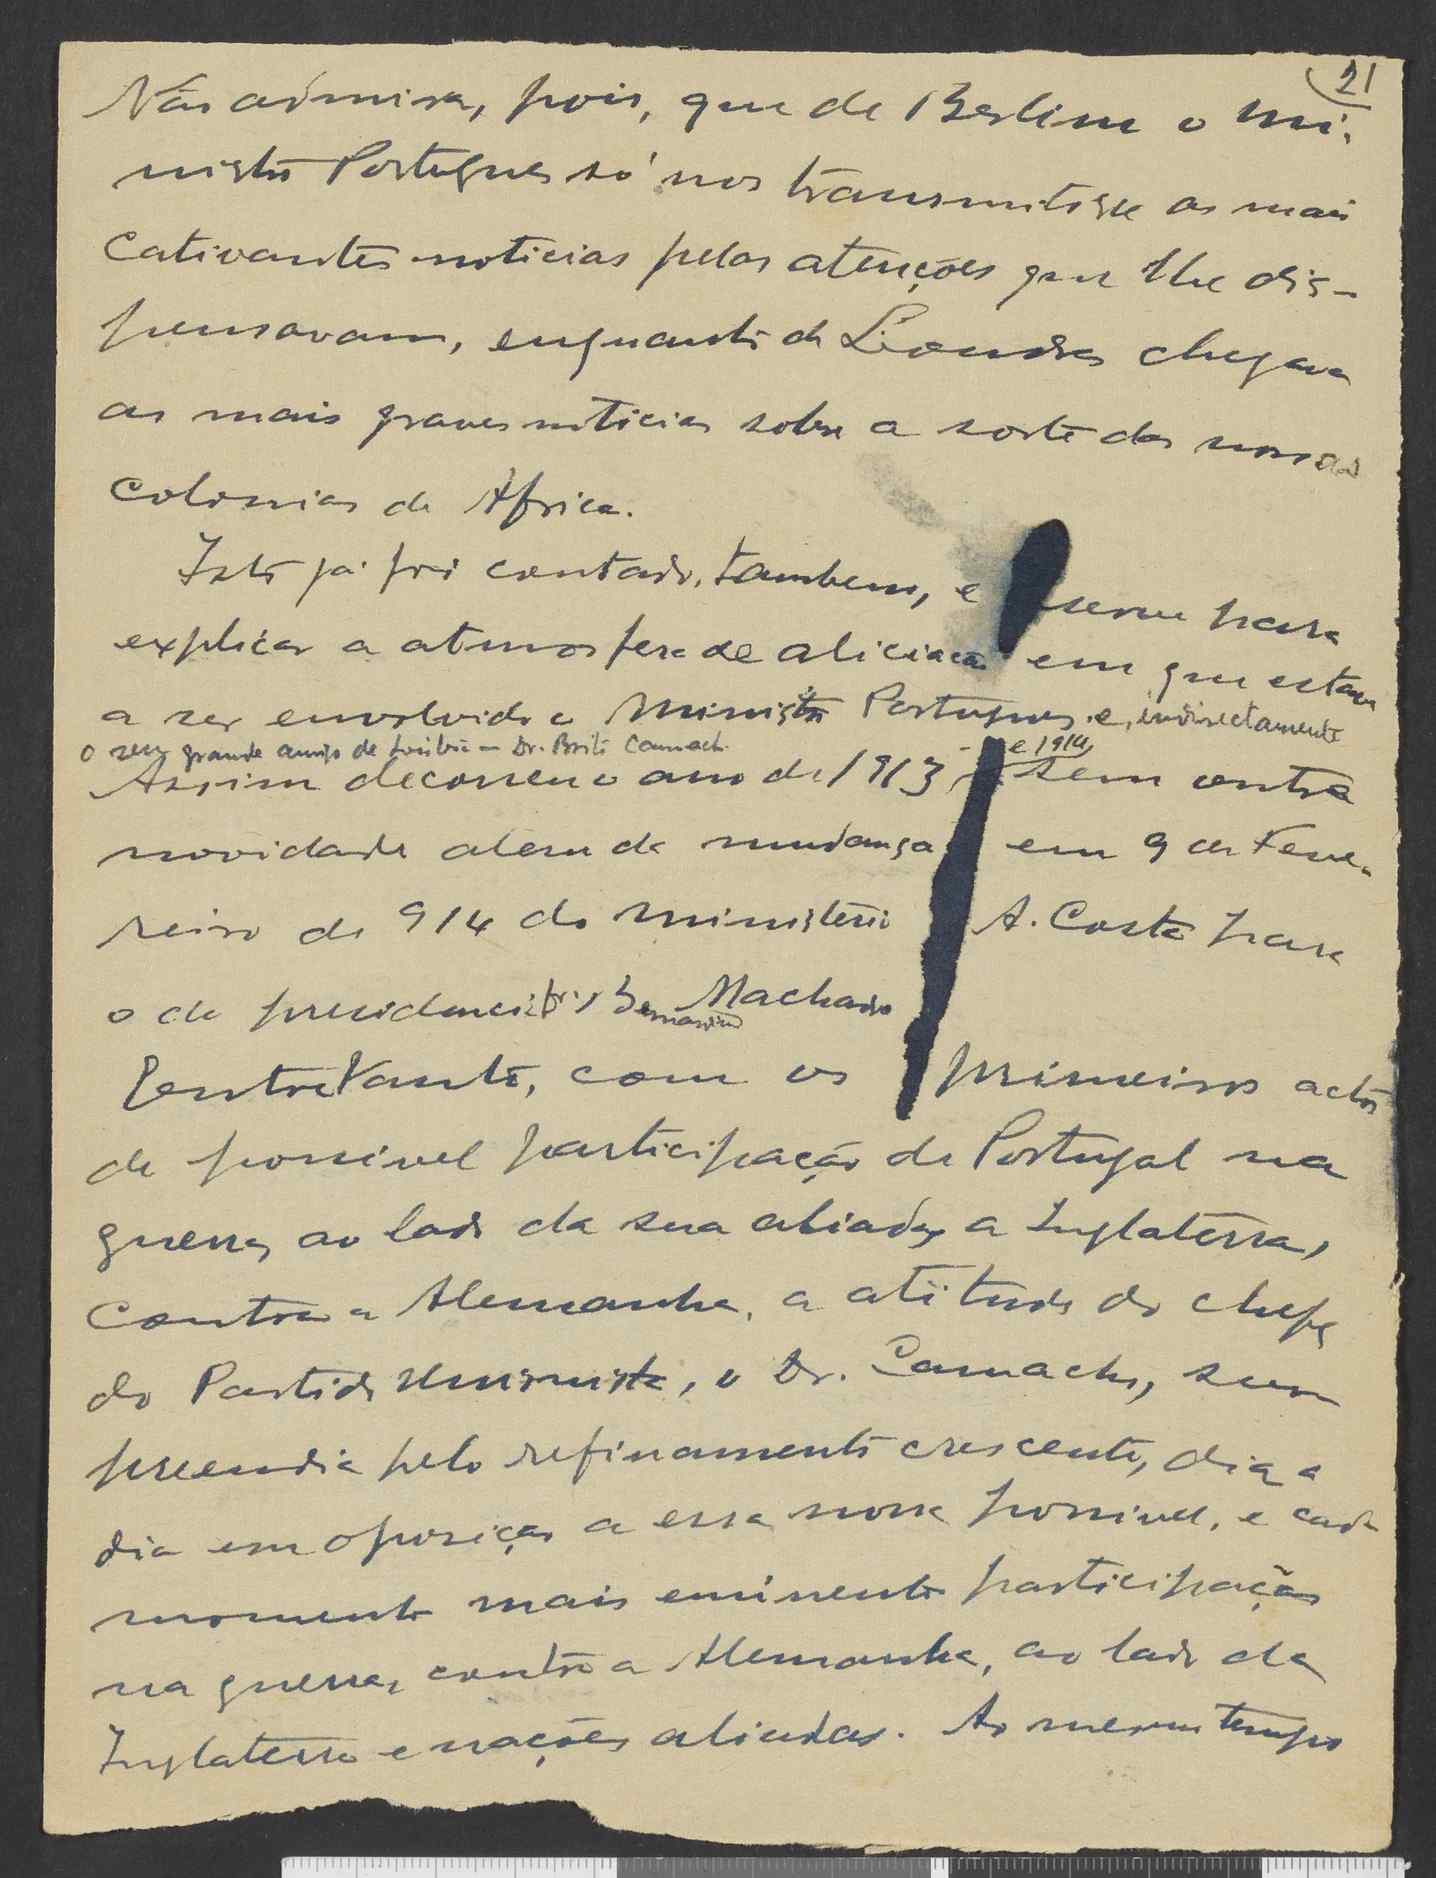 21
Não admira, pois, que de Berlim o mi-
nistro Portugues só nos transmitisse as mais
cativantes noticias pelas atenções que lhe dis-
pensavam, enquanto de Londres chegava
as mais graves noticias sobre a sorte das nossas
colonias de Africa.
Isto já foi contado, tambem, e serve para
explicar a atmosfera de aliciação em que estava
a ser envolvido o Ministro Portugues, e, indirectamente
o seu grande amigo de Lisboa – Dr. Brito Camacho.
Assim decorreu o ano de 1913 e 1914, sem outra
novidade alem da mudança em 9 de Feve-
reiro de 914 do ministerio A. Costa para
o da presidencia Bernardino Machado
Entretanto, com os primeiros actos
de possivel participação de Portugal na
guerra, ao lado da sua aliada, a Inglaterra,
contra a Alemanha, a atitude do chefe
do Partido Unionista, o Dr. Camacho, sur
preendia pelo refinamento crescente, dia a
dia em oposição a essa nossa possivel, e cada
momento mais eminente participação
na guerra, contra a Alemanha, ao lado da
Inglaterra e nações aliadas. Ao mesmo tempo